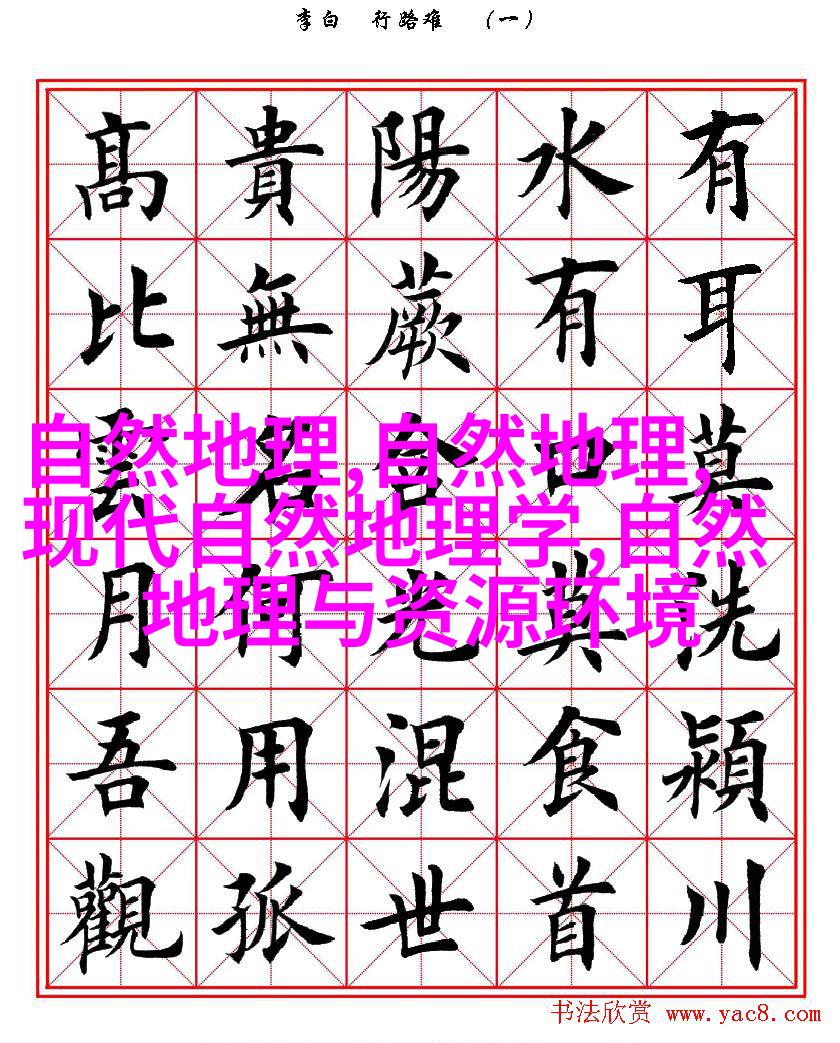 李白 行路难 （一）
有耳莫洗潁川
水有口莫食首
陽蕨含光混世
貴無名何用孤
髙比雲月吾觀
自然地理,自然地理,
现代自然地理学,自然
地理与资源环境
书法欣赏 www.yac8.com